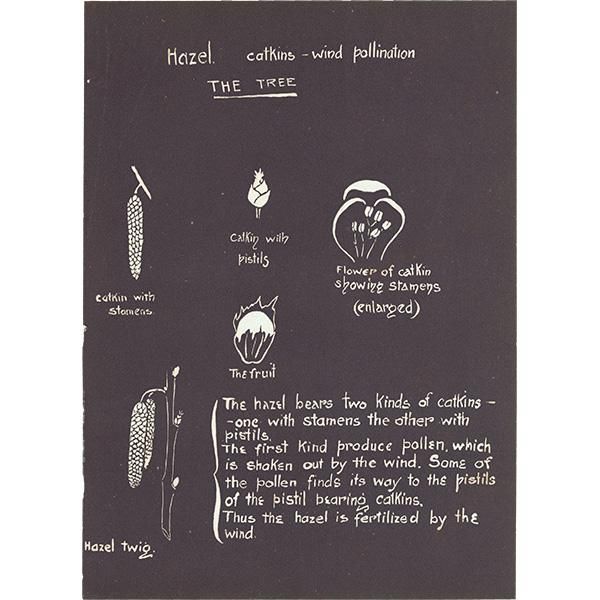 Hazel. catkins – wind pollination
THE TREE
catkin with
stamens.
Catkin with
pistils
Flower of catkin
showing stamens
(enlarged)
The fruit
Hazel twig.
The hazel bears two kinds of catkins –
-one with stamens the other with
pistils.
The first kind produce pollen, which
is shaken out by the wind. Some of
the pollen finds its way to the pistils
of the pistil bearing catkins.
Thus the hazel is fertilized by the
wind.